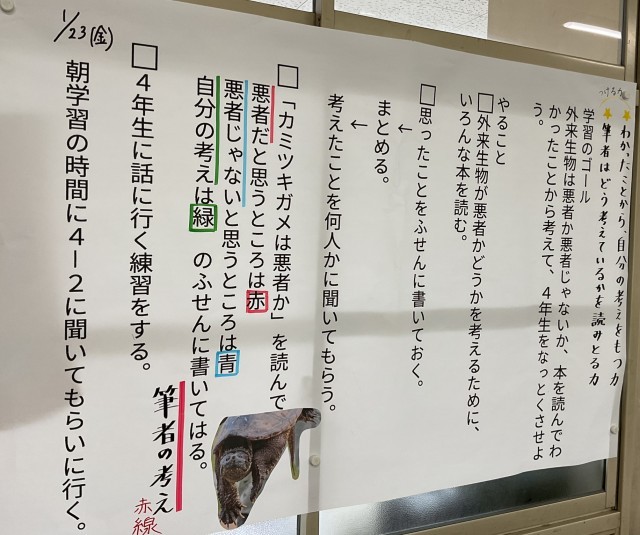 つけるカ
★わかったことから、自分の考えをもつ力
★筆者はどう考えているかを読みとる力
学習のゴール
外来生物は悪者か悪者じゃないか、本を読んでわ
かったことから考えて、４年生をなっとくさせよ
う。
やること
□外来生物が悪者かどうかを考えるために、
いろんな本を読む。
□思ったことをふせんに書いておく。
←
まとめる。
←
考えたことを何人かに聞いてもらう。
□「カミツキガメは悪者か」を読んで
悪者だと思うところは赤
悪者じゃないと思うところは青
自分の考えは緑 のふせんに書いてはる。
筆者の考え
赤線
□４年生に話に行く練習をする。
1/23(金)
朝学習の時間に４－２に聞いてもらいに行く。